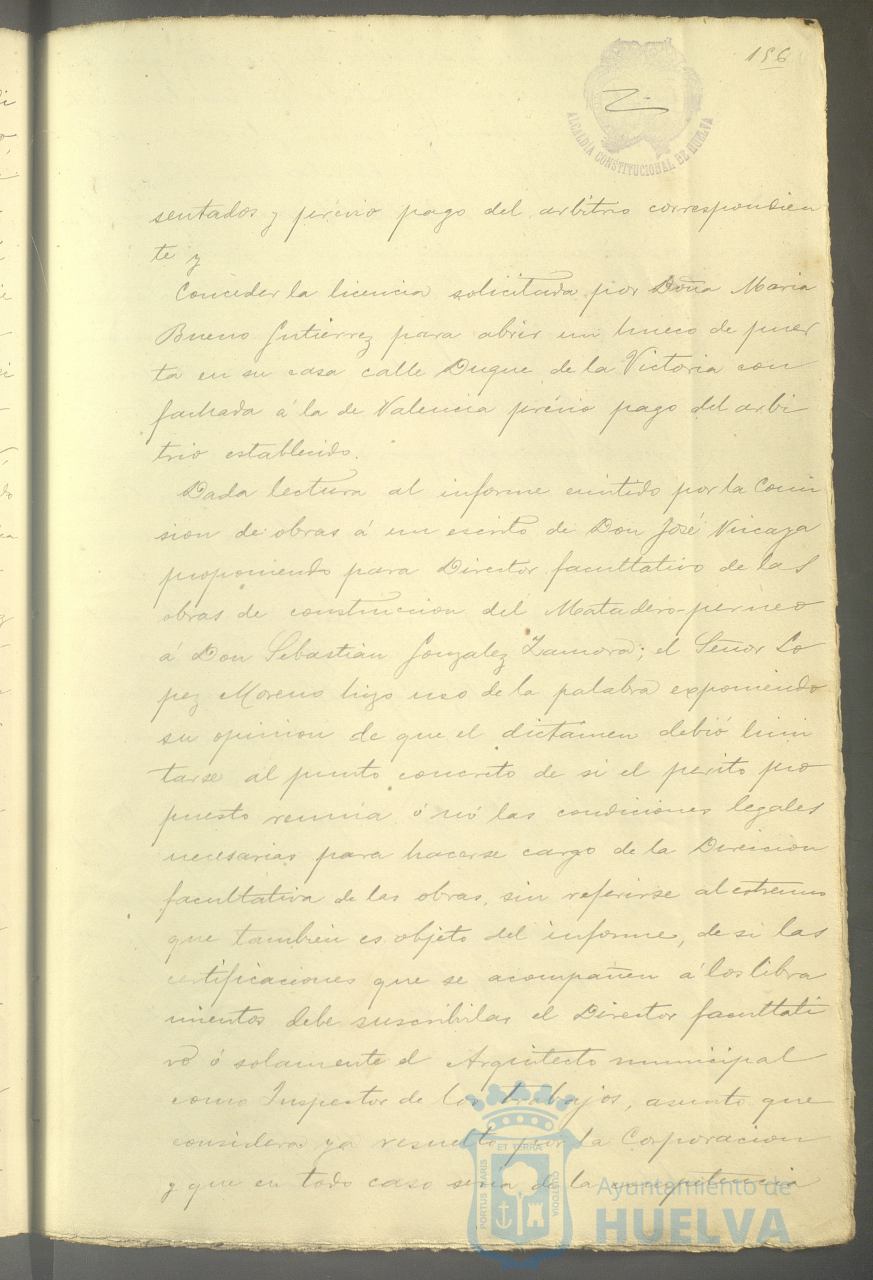 156
ALCALDIA CONSTITUCIONAL DE HUELVA
sentados y prévio pago del arbitrio correspondien
te y
Conceder la licencia solicitada por Doña Maria
Bueno Gutierrez para abrir un hueco de puer
ta en su casa calle Duque de la Victoria con
fachada á la de Valencia prévio pago del arbi
trio establecido.
Dada lectura al informe emitido por la Comi
sion de obras á un escrito de Don José Vizcaya
proponiendo para Director facultativo de las
obras de construccion del Matadero-perneo
á Don Sebastian Gonzalez Zamora; el Señor Lo
pez Moreno hizo uso de la palabra exponiendo
su opinion de que el dictámen debió limi
tarse al punto concreto de si el perito pro
puesto reunia ó nó las condiciones legales
necesarias para hacerse cargo de la Direccion
facultativa de las obras, sin referirse al estremo
que tambien es objeto del informe, de si las
certificaciones que se acompañen á los libra
mientos debe suscribirlas el Director facultati
vo ó solamente el Arquitecto municipal
como Inspector de los trabajos, asunto que
considera ya resuelto por la Corporacion
y que en todo caso seria de la competencia
ET TERRA
PORTUS MARIS
CUSTODIA
Ayuntamiento de
HUELVA